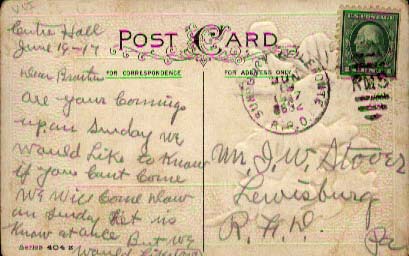 Centre Hall
June 19-17
POST CARD
FOR CORRESPONDENCE
FOR ADDRESS ONLY
Dear Brother
Are your Comings
up on Sunday we
would Like to Know
if you Cant Come
We Will Come down
on Sunday Let us
Know at once But we
would Like
Series 404 E
U.S. POSTAGE
R.P.O.
Mr. J. W. Stover
Lewisburg
R. F. D.
Pa